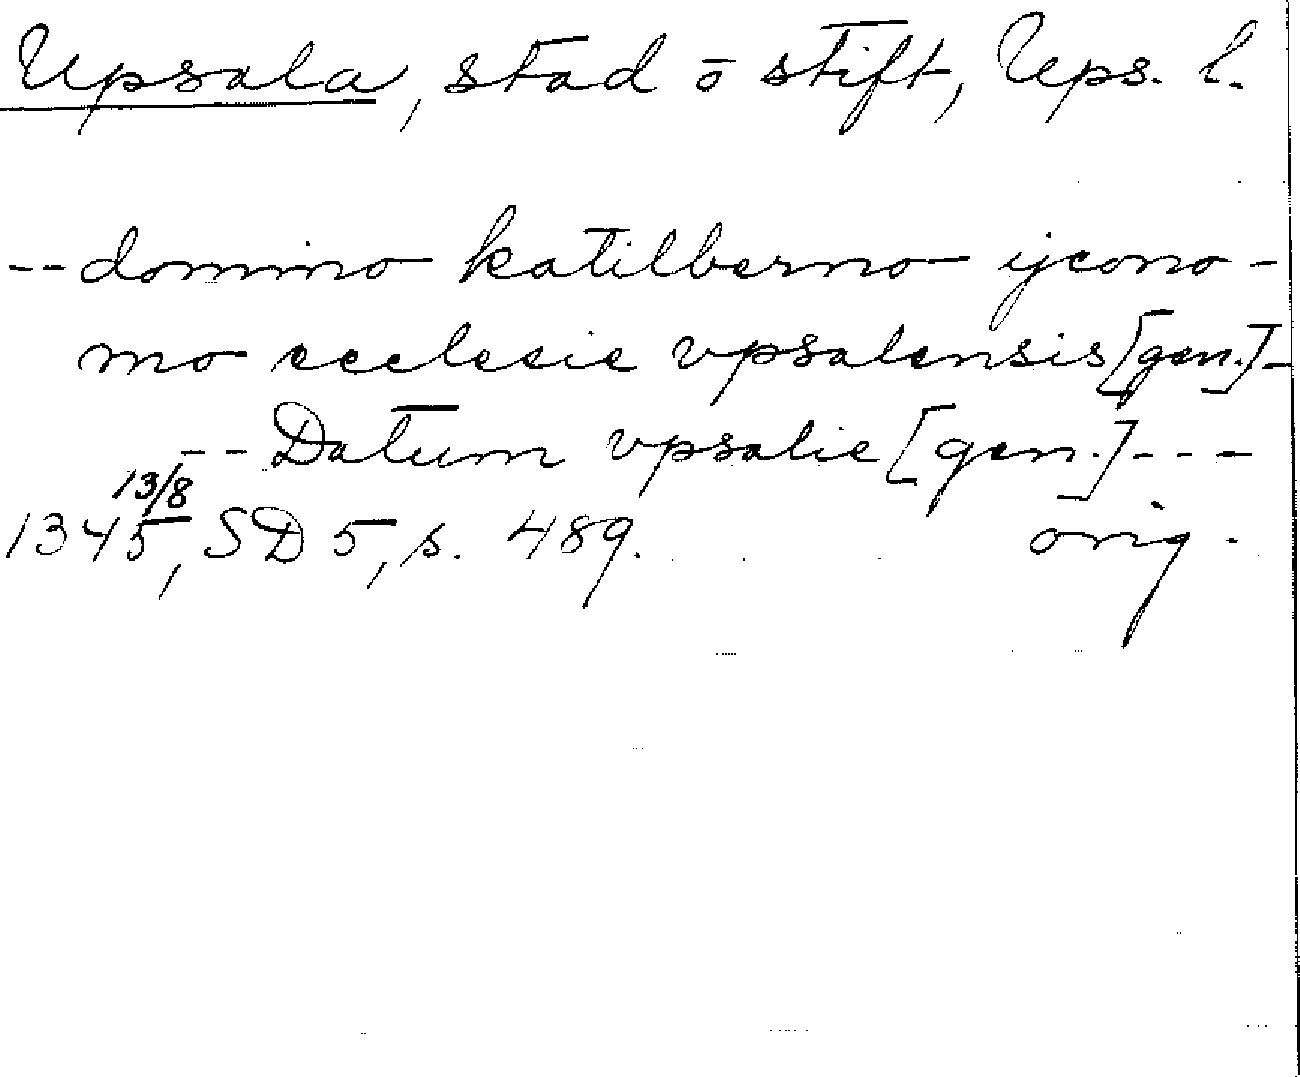 Upsala, stad o stift, Ups. l.
-- domino katilberno ycono-
mo ecclesie vpsalensis [gen.] -
-- Datum vpsalie [gen.] ---
13/8
1345, SD 5, s. 489. orig.